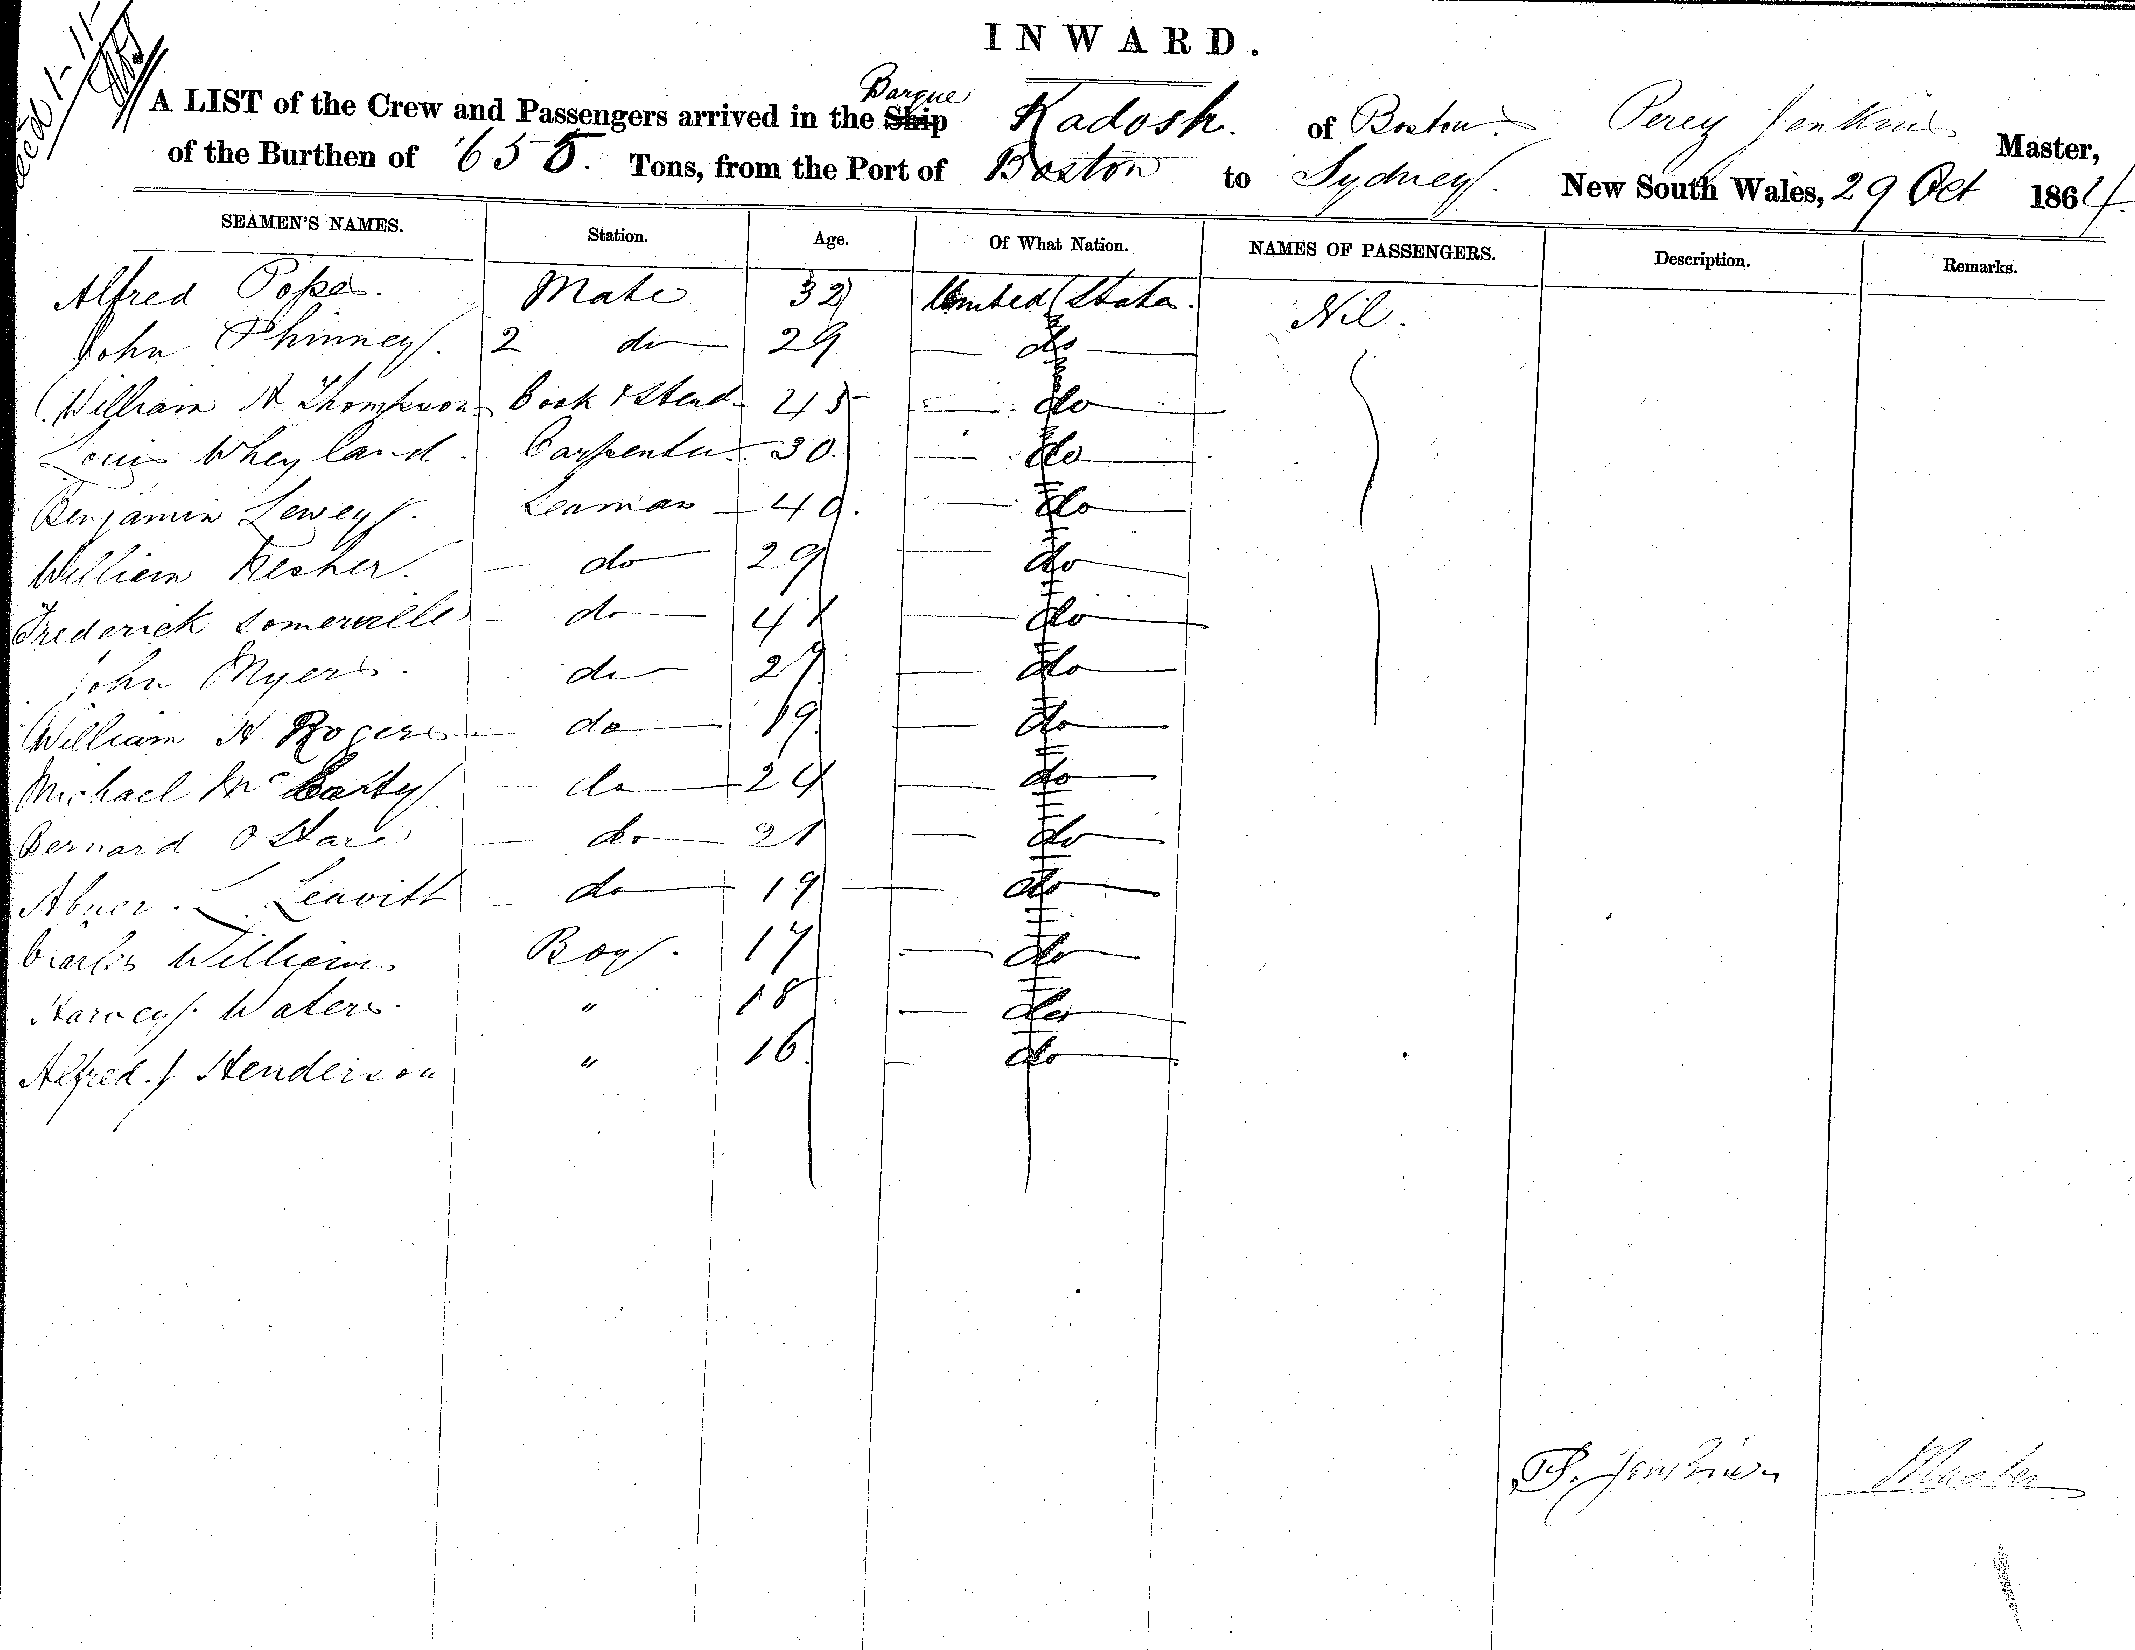 INWARD.
A LIST of the Crew and Passengers arrived in the Ship Barque Kadosh. of Boston. Percy Jenkins Master,
of the Burthen of 655. Tons, from the Port of Boston to Sydney. New South Wales, 29 Oct 1864.
SEAMEN'S NAMES. Station. Age. Of What Nation. NAMES OF PASSENGERS. Description. Remarks.
Alfred Pope. Mate 32 United States. Nil.
John Phinney. 2 do 29 do
William H Thompson Cook & Stewd 45 do
Louis Wheyland. Carpenter 30. do
Benjamin Lewey. Seaman 40. do
William Kesher. do 29 do
Frederick Somerville do 41 do
John Myers. do 27 do
William H Rogers do 19 do
Michael McCarty do 24 do
Bernard O Hare do 21 do
Abner. L. Leavitt do 19 do
Charles Williams Boy. 17 do
Harvey. Waters. " 18 do
Alfred. J Henderson " 16 do
P. Jenkins Master